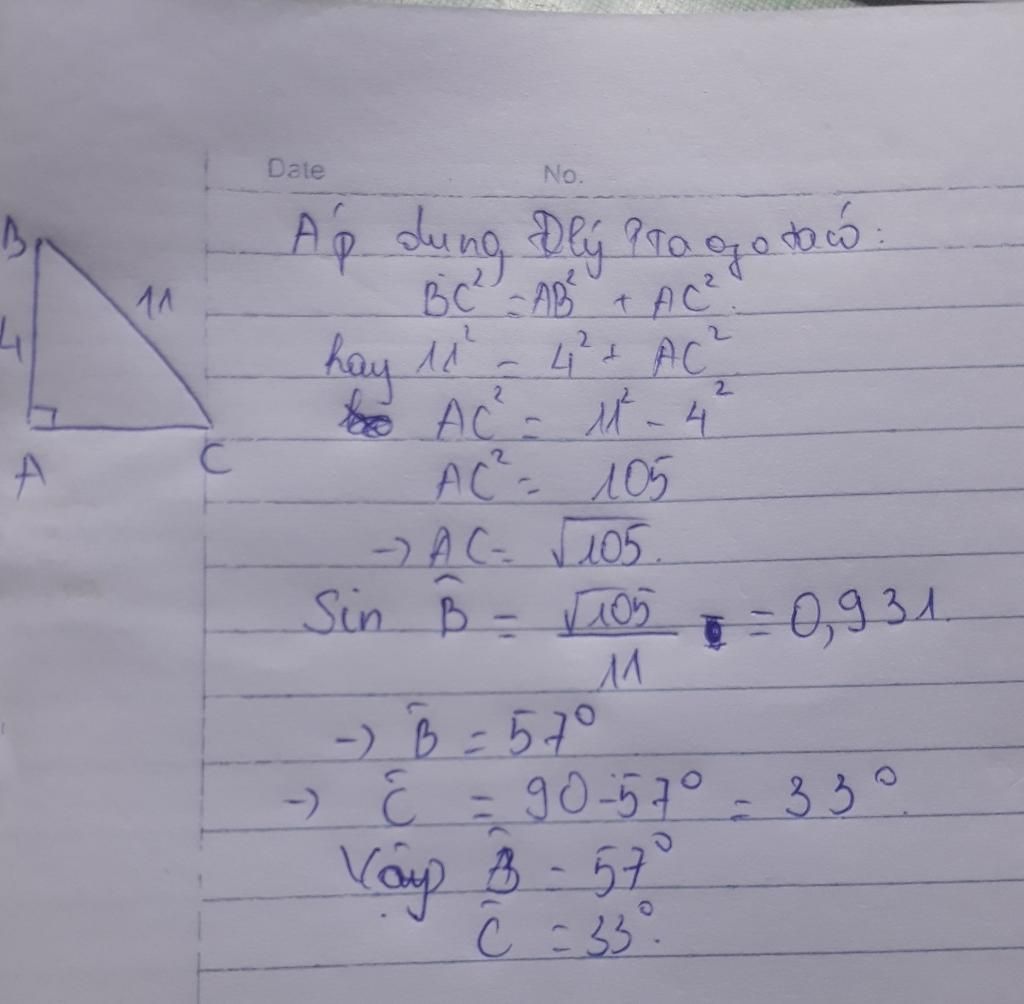 Date No.
Áp dụng Đlý Pytago ta có:
BC² = AB² + AC².
B
11
hay 11² = 4² + AC²
4
AC² = 11² - 4²
A
C
AC² = 105
→ AC = √105.
Sin B̂ = √105 / 11 = 0,931.
→ B̂ = 57°
→ Ĉ = 90 - 57° = 33°.
Vậy B̂ = 57°
Ĉ = 33°.